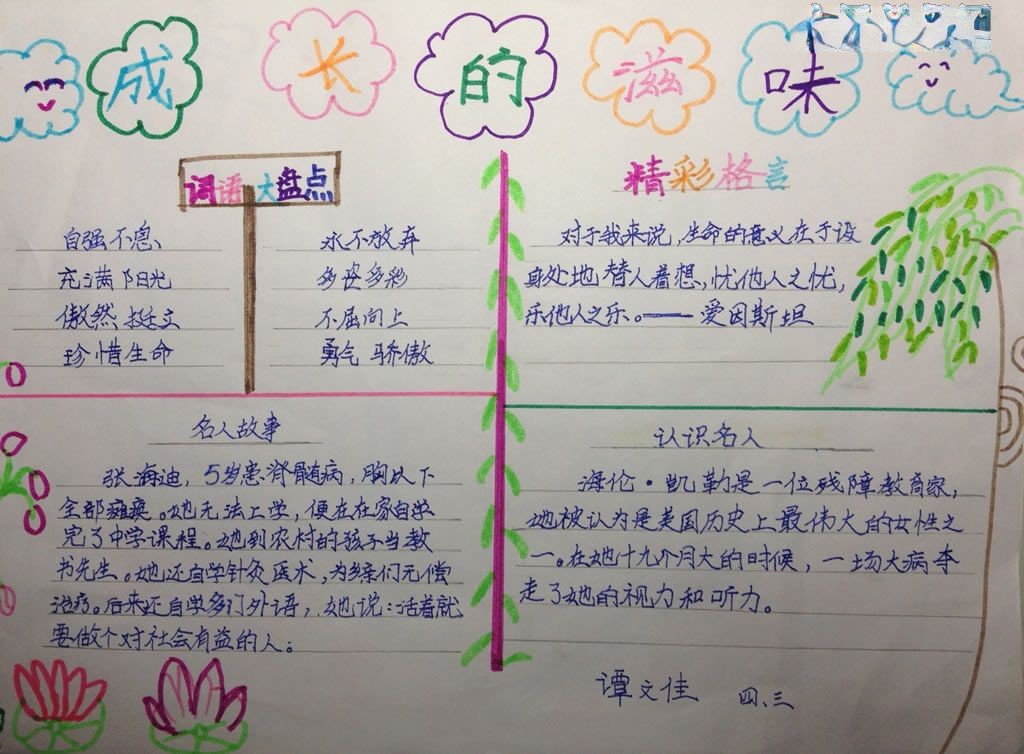 成长的滋味
词语大盘点
自强不息、 永不放弃
充满阳光 多姿多彩
傲然挺立 不屈向上
珍惜生命 勇气 骄傲
精彩格言
对于我来说，生命的意义在于设
身处地替人着想，忧他人之忧，
乐他人之乐。——爱因斯坦
名人故事
张海迪，5岁患脊髓病，胸以下
全部瘫痪。她无法上学，便在在家自学
完了中学课程。她到农村的孩子当教
书先生。她还自学针灸医术，为乡亲们无偿
治疗。后来还自学多门外语，她说：活着就
要做个对社会有益的人。
认识名人
海伦·凯勒是一位残障教育家，
她被认为是美国历史上最伟大的女性之
一。在她十九个月大的时候，一场大病夺
走了她的视力和听力。
谭文佳 四、三